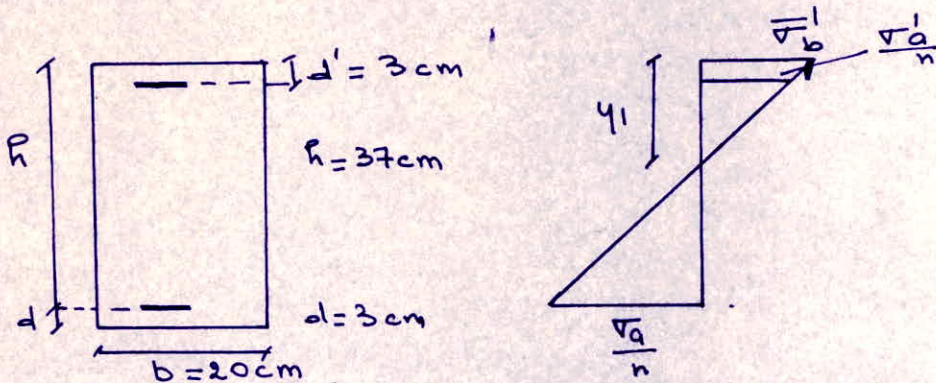 d' = 3 cm
h
h = 37 cm
d
d = 3 cm
b = 20 cm
σ̅'b
σ'a
n
y1
σa
n